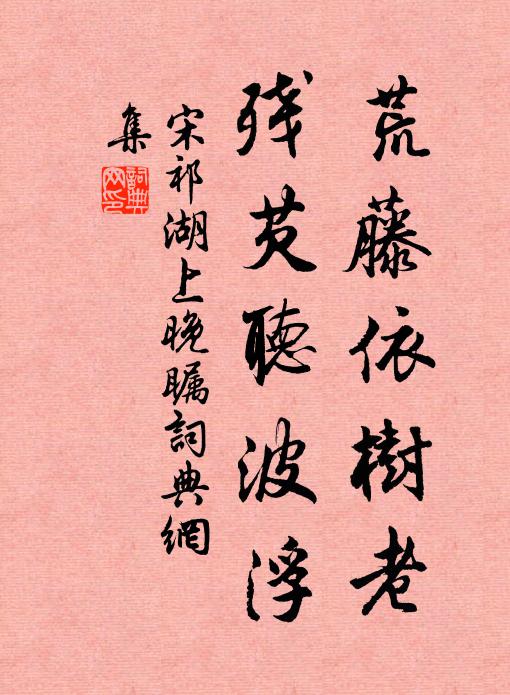 荒藤依樹老
残芡聽波浮
宋祁湖上晚瞩詞典網
集
詞典
网印